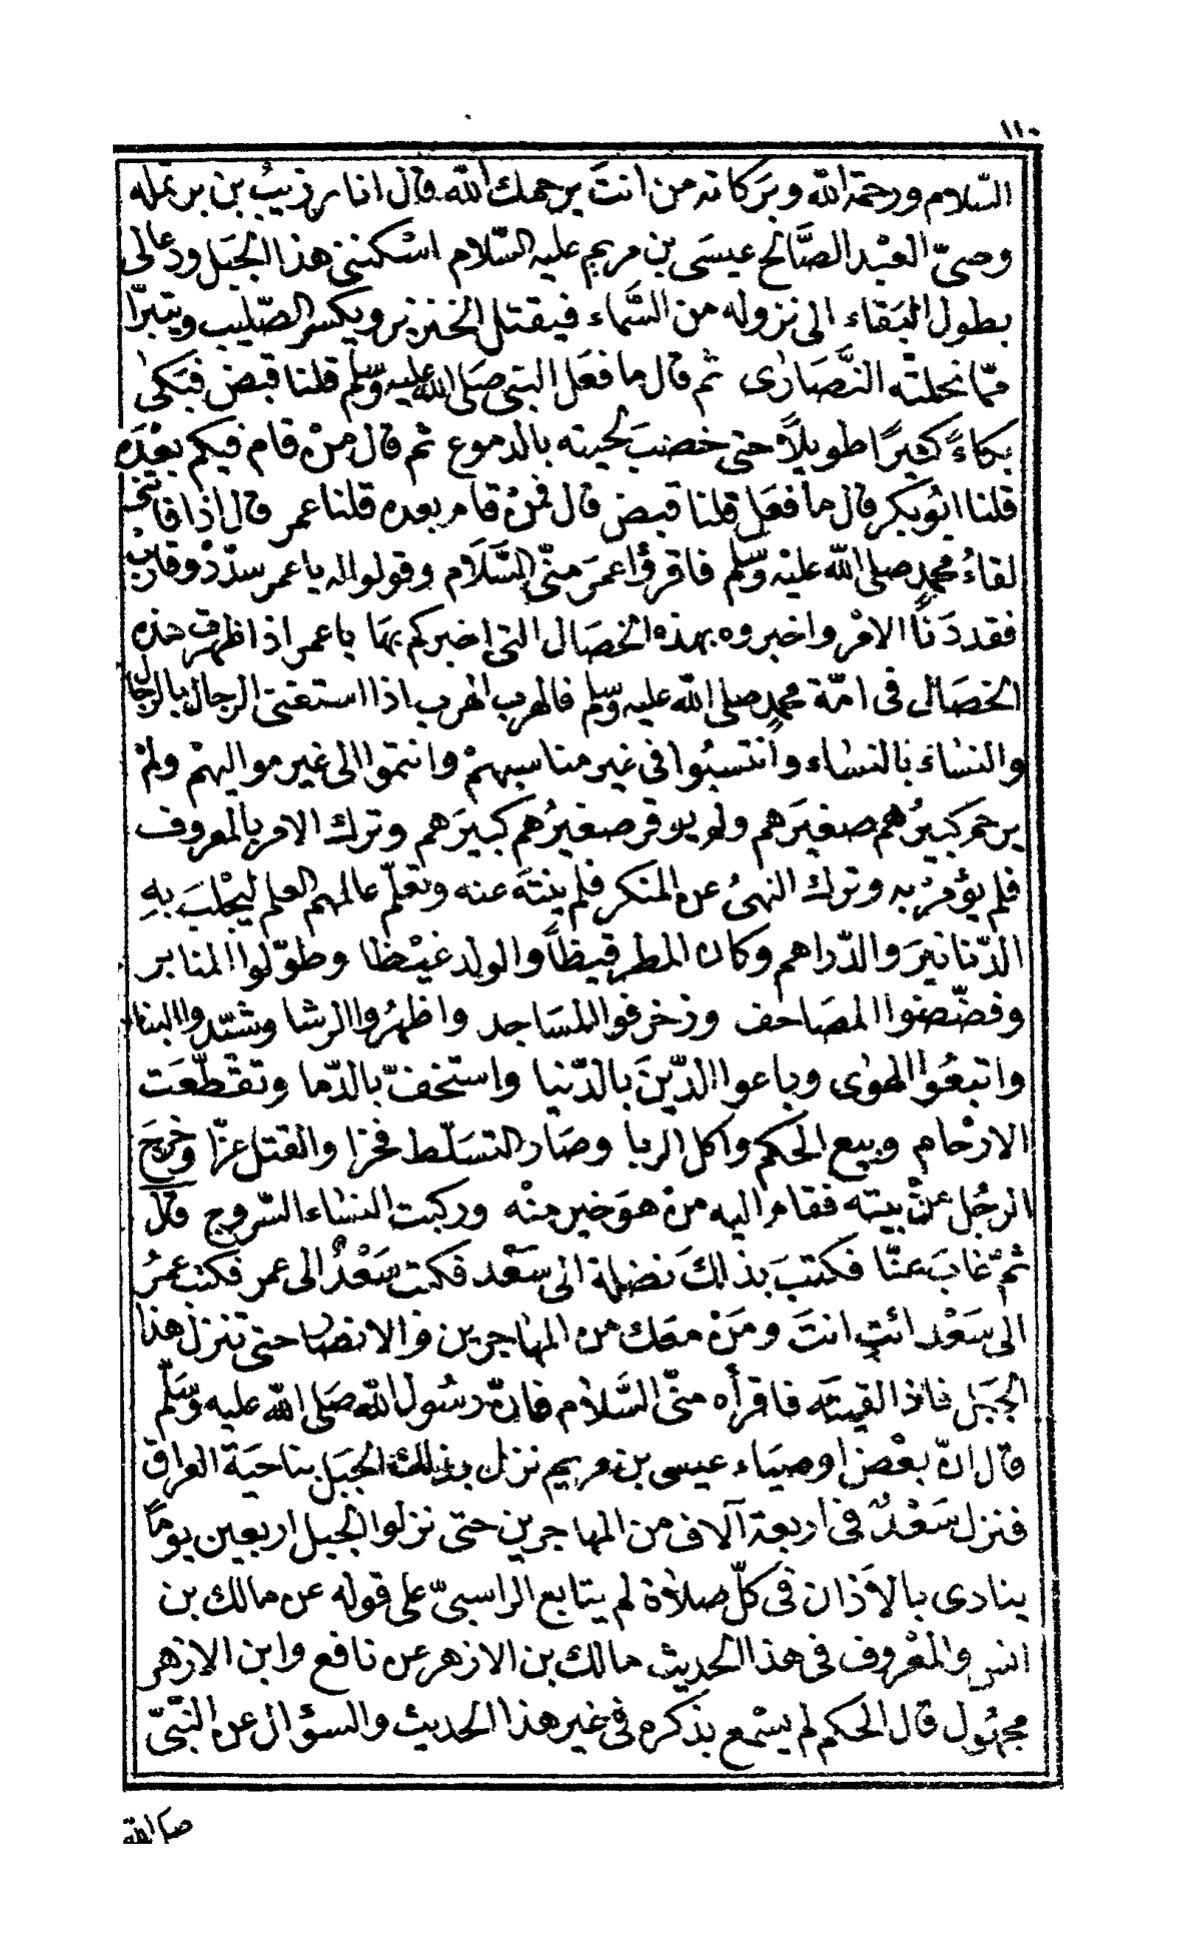 ١١٠
السّلام ورحمة الله وبَرَكاته من انتَ يرحمك الله قال انا رزيبُ بن برثمله
وصىّ العبْد الصَّالح عيسَى بن مريم عليه السّلام اسْكننى هذا الجَبَل ودعا لى
بطول البَقاء الى نزوله من السَّماء فيقتل الخنزير ويكسر الصّليب ويتبرّا
ممّا نحلتْه النَّصَارٰى ثم قال ما فعَل النبى صَلى الله عليه وسّلم قلنا قبض فبَكىٰ
بكاءً كثيرًا طويلًا حتى خضبَ لحيته بالدموع ثم قال منْ قام فيكم بعْدَه
قلنا ابُو بكر قال ما فعَل قلنا قبض قال فمنْ قام بعده قلنا عمر قال اذا فاتنى
لقاءُ محمدٍ صلى الله عليْه وسّلم فاقرؤا عمرَ منّى السَّلَام وقولوا له يا عمر سدّدْ وقاربْ
فقد دَنا الامْر واخبروه بهذه الخصَال التى اخبركم بهَا يا عمر اذا ظهرت هذه
الخصَال فى امّة محمدٍ صلى الله عليه وسلم فالهرب الهرب اذا استغنى الرجال بالرجال
والنساءَ بالنسَاء وانتسبُوا فى غير مناسبهمْ وانتموا الى غير مواليهمْ ولمْ
يرحم كبيرُهم صغيرَهم ولم يوقر صغيرُهم كبيرَهم وترك الامر بالمعروف
فلم يؤمرْ به وترك النهىُ عن المنكر فلم ينتهَ عنه وتعلّم عالمهم العلم ليجْلبَ بِهِ
الدّنانيرَ والدّراهم وكان المطر قيظًا والولد غيْظا وطوّلوا المنابر
وفضّضوا المصَاحف وزخرفوا المسَاجد واظهرُوا الرشا وشيّدوا البنا
واتبعُوا الهوٰى وباعوا الدّينَ بالدّنيا واستخفّ بالدّما وتقطّعَت
الارْحام وبيع الحكم واكل الربا وصَار التسَلّط فخرًا والقتل عزّا وخرجَ
الرجُل منْ بيته فقام اليه منْ هوَ خير منْه وركبت النسَاء السّروج قال
ثمّ غابَ عنّا فكتبَ بذلكَ نضلة الى سَعْد فكتب سَعْدٌ الى عمر فكتب عمرُ
الى سَعْد ائتِ انتَ ومَنْ معَك من المهاجرين والانصار حتى تنزل هذا
الجبَل فاذا لقيتَه فاقرأه منّى السَّلام فانّ رسُول الله صَلى الله عليه وسَلّم
قال انّ بعْض اوصيَاء عيسى بن مريم نزل بذلك الجبَل بناحيَة العراق
فنزل سَعْدٌ فى اربعة آلاف من المهاجرين حتى نزلوا الجبل اربعين يومًا
ينادى بالأذان فى كلّ صلاة لم يتابع الراسبىّ على قوله عن مالك بن
انس والمعْروف فى هذا الحديث مالك بن الازهر عن نافع وابن الازهر
مجهُول قال الحكم لم يسْمع بذكره فى غير هذا الحديث والسؤال عن النّبىّ
صلى الله